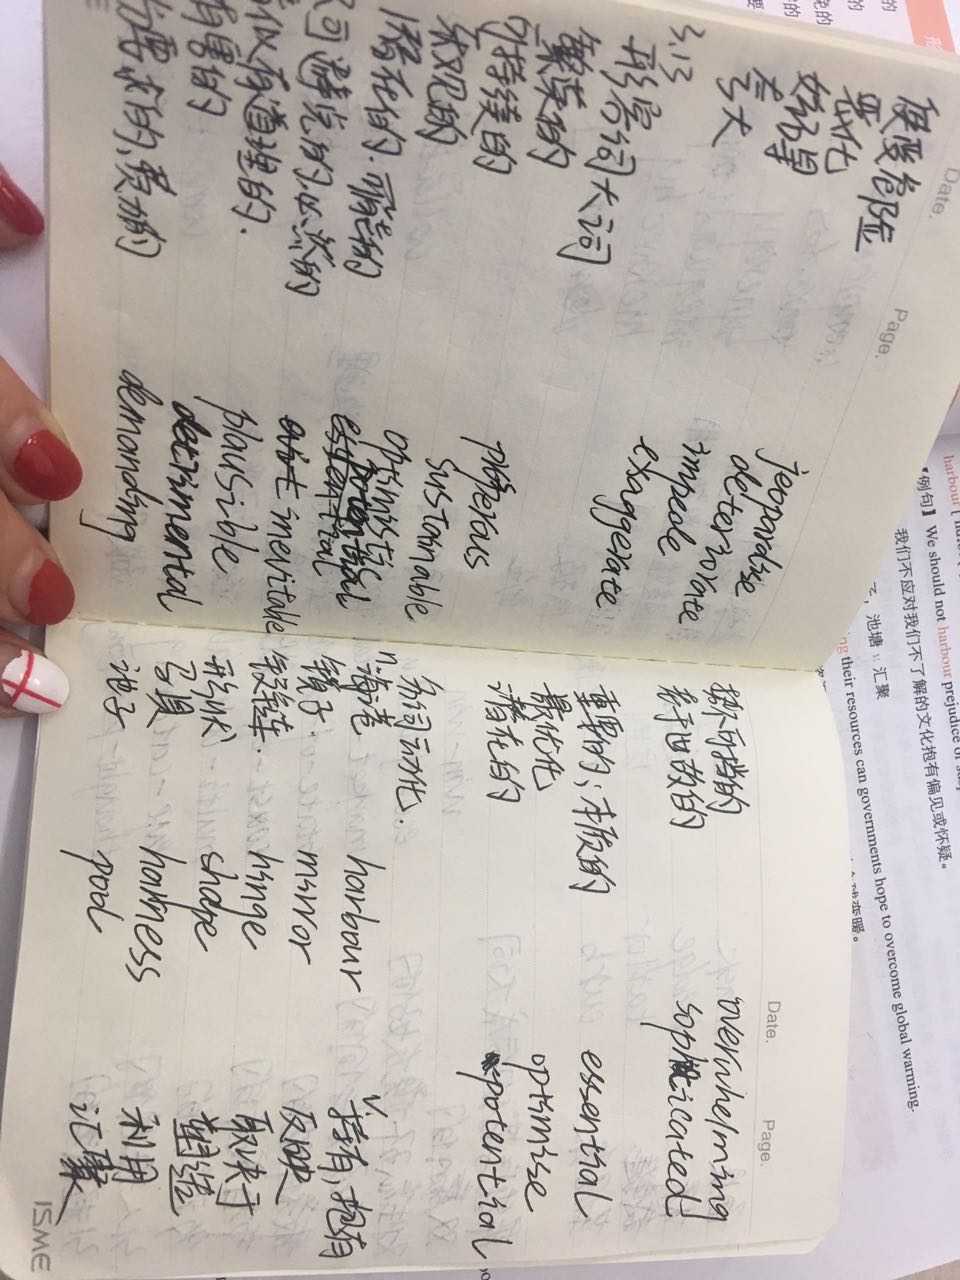 Date. Page.
使受危险 jeopardise
恶化 deteriorate
妨碍 impede
夸大 exaggerate
3.13
形容词大词
繁荣的 prosperous
可持续的 sustainable
乐观的 optimistic
潜在的. essential
不可避免的,必然的 inevitable
似有道理的. plausible
有害的 detrimental
demanding
Date. Page.
势不可挡的 overwhelming
老于世故的 sophisticated
重要的；本质的 essential
最优化 optimise
潜在的 potential
名词动化.
n. v.
海港 harbour 持有,抱有
镜子 mirror 反映
铰链 hinge 取决于
形状 shape 塑造
马具 harness 利用
池子 pool 汇聚
ISME
harbour
【例句】We should not harbour prejudice or
我们不应对我们不了解的文化抱有偏见或怀疑。
池塘 v. 汇聚
ing their resources can governments hope to overcome global warming.
球变暖。